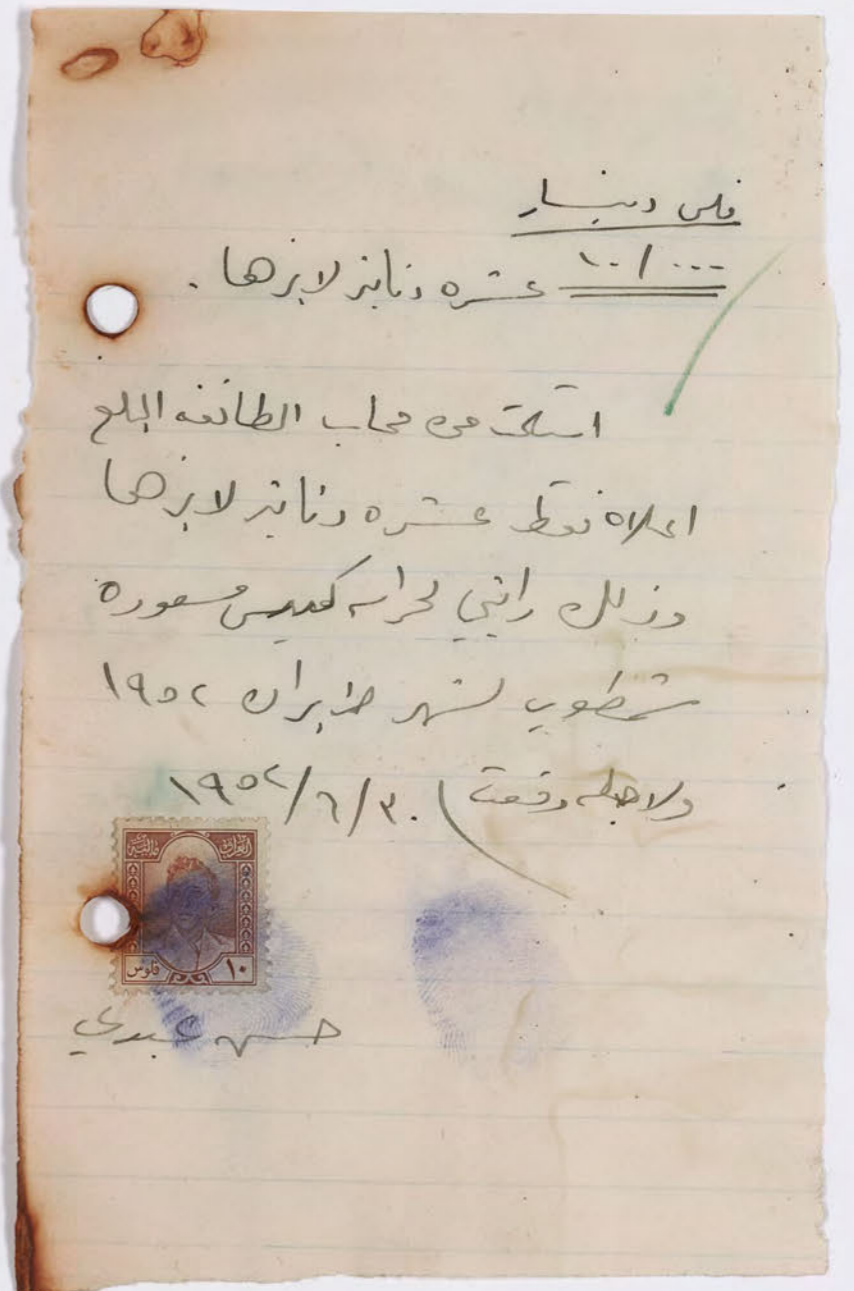 فلس دينار
١٠/٠٠٠ عشره دنانير لاغيرها.
استلمت من محاسب الطائفه المبلغ
اعلاه فقط عشره دنانير لاغيرها
وذلك راتبي لحراسه كنيس مسعوده
شمطوب لشهر حزيران ١٩٥٢
ولاجله وقعت ٣٠/٦/١٩٥٢
العراق مالية
١٠ فلوس
حسن عبدي